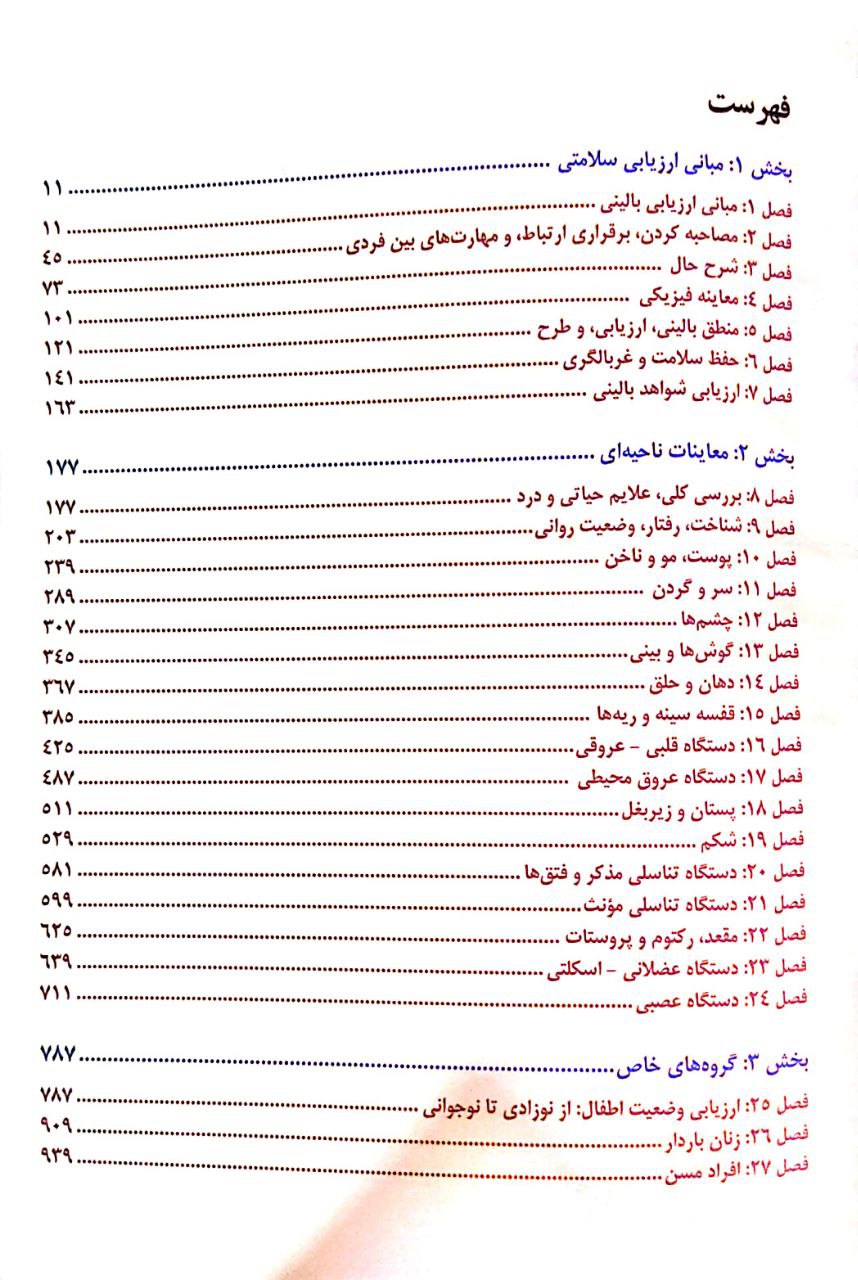 فهرست
بخش ۱: مبانی ارزیابی سلامتی ........ ۱۱
فصل ۱: مبانی ارزیابی بالینی ........ ۱۱
فصل ۲: مصاحبه کردن، برقراری ارتباط، و مهارت‌های بین فردی ........ ۴۵
فصل ۳: شرح حال ........ ۷۳
فصل ۴: معاینه فیزیکی ........ ۱۰۱
فصل ۵: منطق بالینی، ارزیابی، و طرح ........ ۱۲۱
فصل ۶: حفظ سلامت و غربالگری ........ ۱۴۱
فصل ۷: ارزیابی شواهد بالینی ........ ۱۶۳
بخش ۲: معاینات ناحیه‌ای ........ ۱۷۷
فصل ۸: بررسی کلی، علایم حیاتی و درد ........ ۱۷۷
فصل ۹: شناخت، رفتار، وضعیت روانی ........ ۲۰۳
فصل ۱۰: پوست، مو و ناخن ........ ۲۳۹
فصل ۱۱: سر و گردن ........ ۲۸۹
فصل ۱۲: چشم‌ها ........ ۳۰۷
فصل ۱۳: گوش‌ها و بینی ........ ۳۴۵
فصل ۱۴: دهان و حلق ........ ۳۶۷
فصل ۱۵: قفسه سینه و ریه‌ها ........ ۳۸۵
فصل ۱۶: دستگاه قلبی - عروقی ........ ۴۲۵
فصل ۱۷: دستگاه عروق محیطی ........ ۴۸۷
فصل ۱۸: پستان و زیربغل ........ ۵۱۱
فصل ۱۹: شکم ........ ۵۲۹
فصل ۲۰: دستگاه تناسلی مذکر و فتق‌ها ........ ۵۸۱
فصل ۲۱: دستگاه تناسلی مؤنث ........ ۵۹۹
فصل ۲۲: مقعد، رکتوم و پروستات ........ ۶۲۵
فصل ۲۳: دستگاه عضلانی - اسکلتی ........ ۶۳۹
فصل ۲۴: دستگاه عصبی ........ ۷۱۱
بخش ۳: گروه‌های خاص ........ ۷۸۷
فصل ۲۵: ارزیابی وضعیت اطفال: از نوزادی تا نوجوانی ........ ۷۸۷
فصل ۲۶: زنان باردار ........ ۹۰۹
فصل ۲۷: افراد مسن ........ ۹۳۹